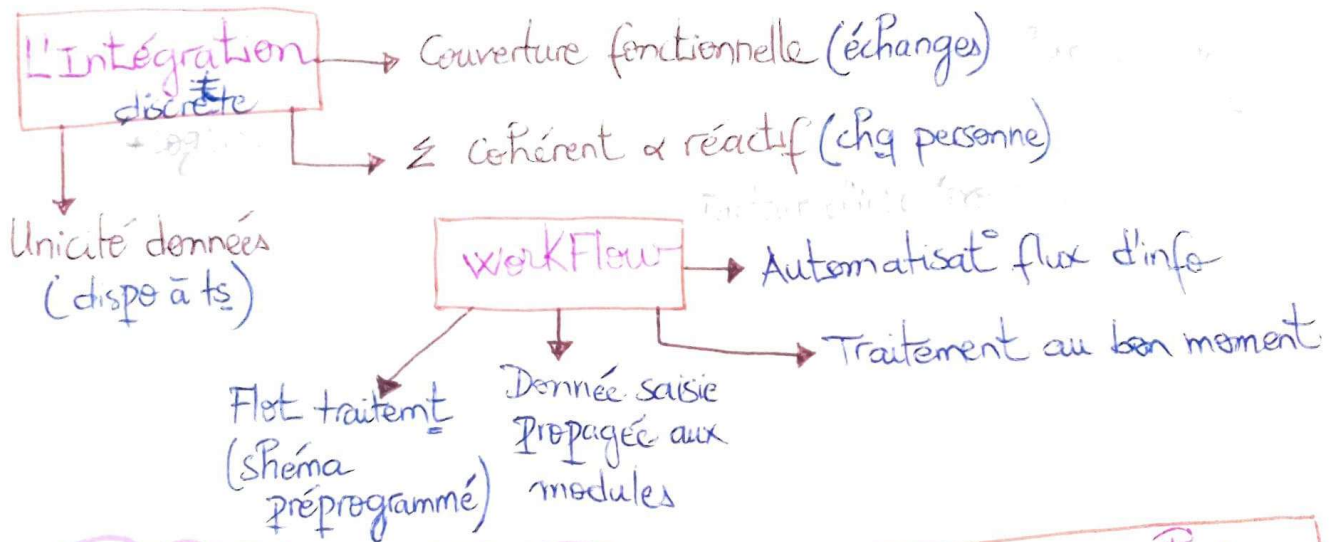 L'Intégration
discrète
Couverture fonctionnelle (échanges)
Σ cohérent & réactif (chq personne)
Unicité données
(dispo à ts)
workFlow
Automatisat° flux d'info
Traitement au bon moment
Flot traitemt
(shéma
préprogrammé)
Donnée saisie
Propagée aux
modules